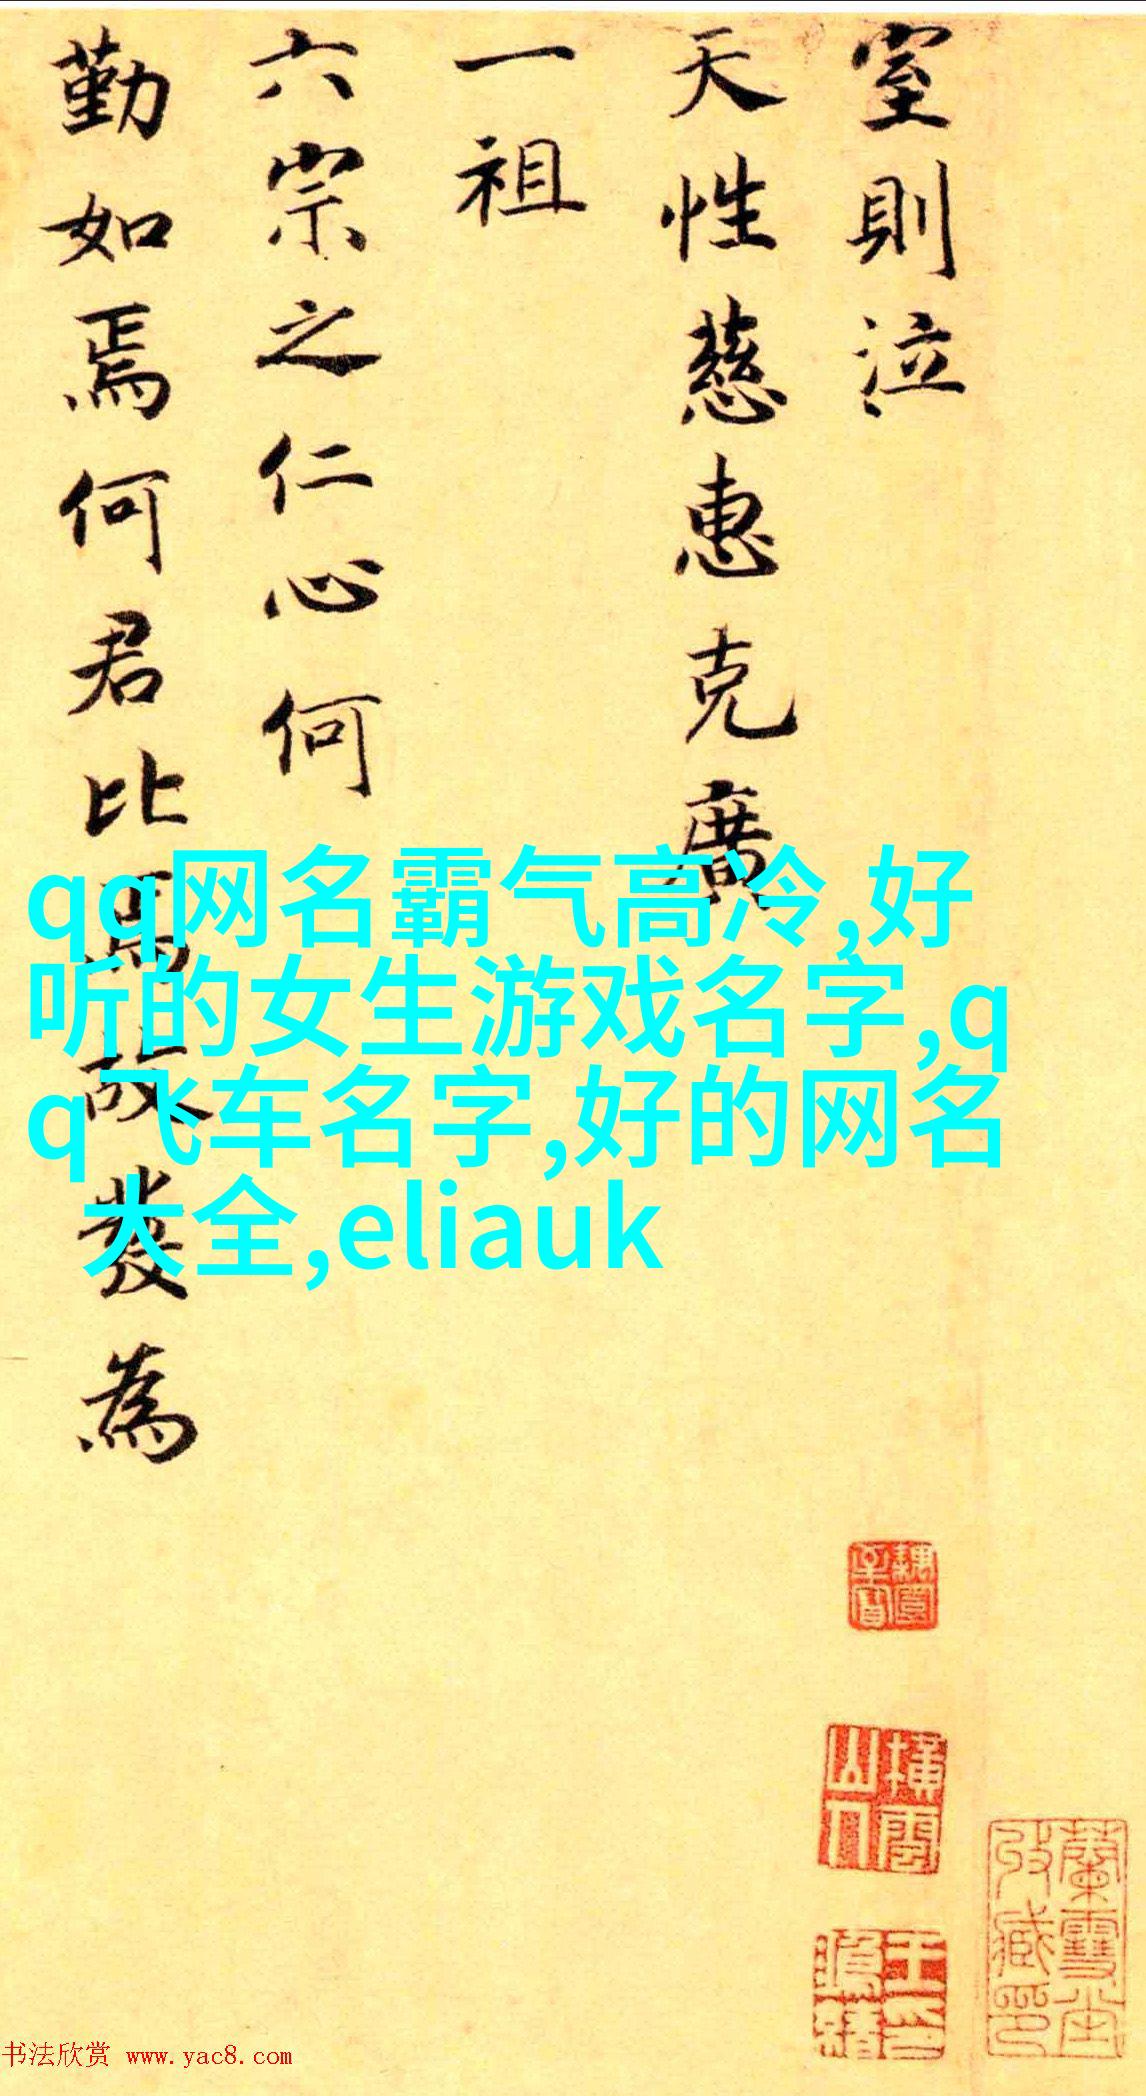 室則泣
天性慈惠克廣
一祖
六宗之仁心何
勤如焉何君比焉故發為
qq网名霸气高冷,好
听的女生游戏名字,q
q飞车名字,好的网名
大全,eliauk
横云山人
蘭雪堂收藏印
书法欣赏 www.yac8.com